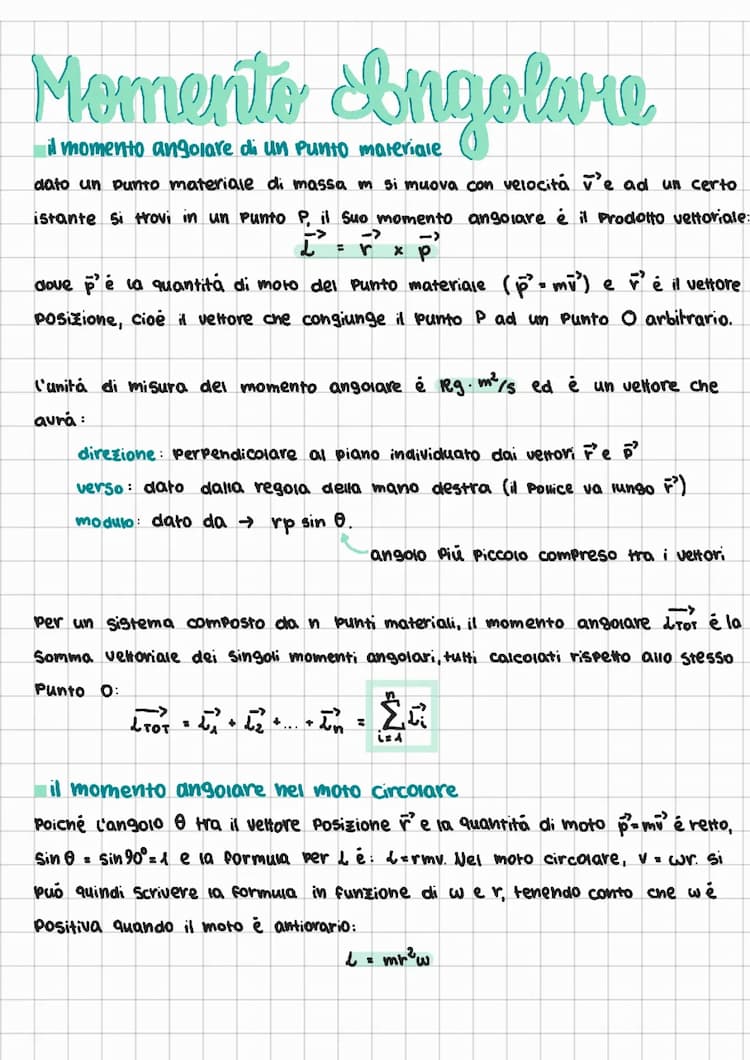 Momento Angolare
il momento angolare di un punto materiale
dato un punto materiale di massa m si muova con velocitá v⃗ e ad un certo
istante si trovi in un punto P, il suo momento angolare é il prodotto vettoriale:
L⃗ = r⃗ x p⃗
dove p⃗ é la quantitá di moto del punto materiale (p⃗ = mv⃗) e r⃗ é il vettore
posizione, cioé il vettore che congiunge il punto P ad un punto O arbitrario.
l'unitá di misura del momento angolare é Kg · m²/s ed é un vettore che
avrá:
direzione: perpendicolare al piano individuato dai vettori r⃗ e p⃗
verso: dato dalla regola della mano destra (il pollice va lungo r⃗)
modulo: dato da → rp sin θ.
angolo piú piccolo compreso tra i vettori
per un sistema composto da n punti materiali, il momento angolare L⃗TOT é la
somma vettoriale dei singoli momenti angolari, tutti calcolati rispetto allo stesso
punto O:
L⃗TOT = L⃗1 + L⃗2 + ... + L⃗n = Σ(i=1, n) L⃗i
il momento angolare nel moto circolare
poiché l'angolo θ tra il vettore posizione r⃗ e la quantitá di moto p⃗ = mv⃗ é retto,
sin θ = sin 90° = 1 e la formula per L é: L=rmv. Nel moto circolare, v = wr. si
può quindi scrivere la formula in funzione di w e r, tenendo conto che w é
positiva quando il moto é antiorario:
L = mr²w